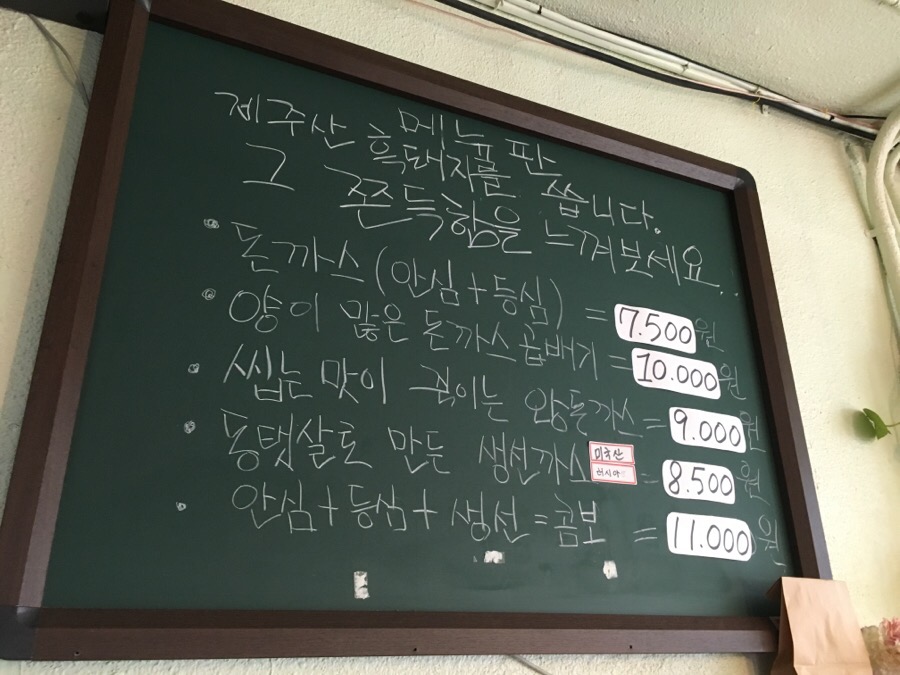 메뉴판
제주산 흑돼지를 씁니다.
그 쫀득함을 느껴보세요...
돈까스 (안심+등심) = 7.500원
양이 많은 돈까스 곱배기 = 10.000원
씹는 맛이 죽이는 왕돈까스 = 9.000원
동탯살로 만든 생선까스 미국산 러시아 = 8.500원
안심+등심+생선=콤보 = 11.000원